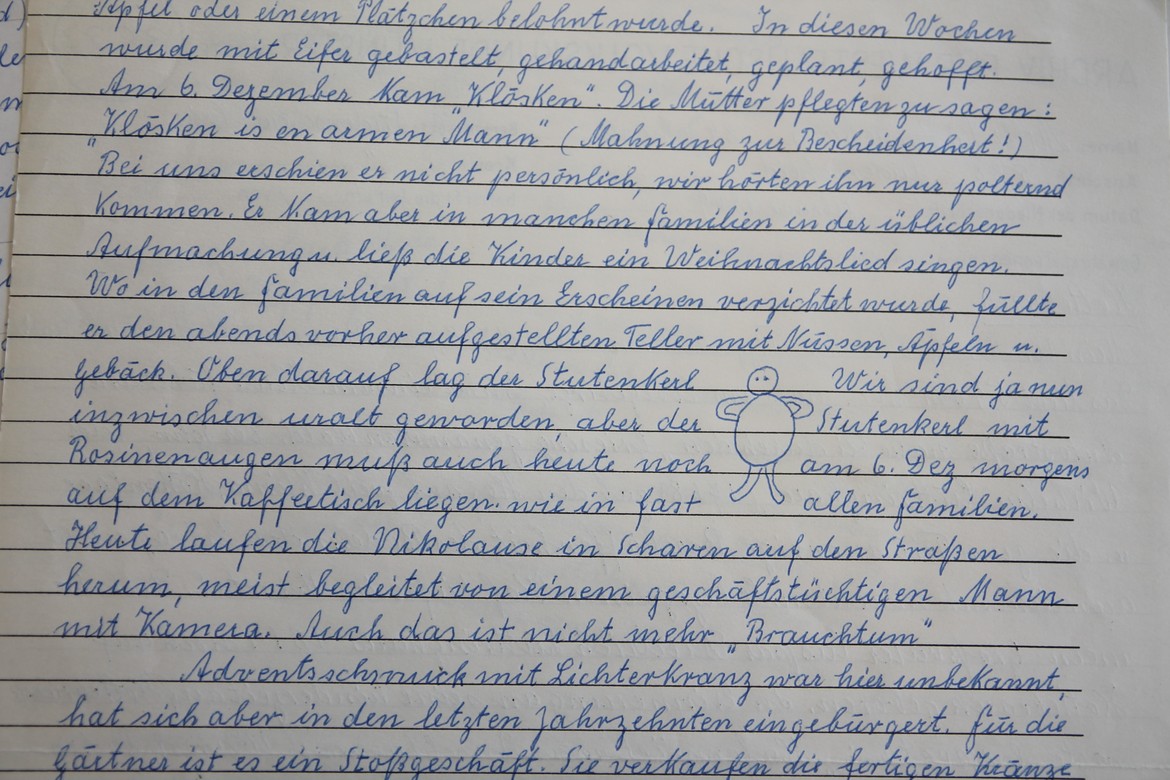 Äpfel oder einem Plätzchen belohnt wurde. In diesen Wochen
wurde mit Eifer gebastelt, gehandarbeitet, geplant, gehofft.
Am 6. Dezember kam "Klösken". Die Mütter pflegten zu sagen:
"Klösken is en armen Mann" (Mahnung zur Bescheidenheit!)
Bei uns erschien er nicht persönlich, wir hörten ihn nur polternd
kommen. Er kam aber in manchen Familien in der üblichen
Aufmachung u. ließ die Kinder ein Weihnachtslied singen.
Wo in den Familien auf sein Erscheinen verzichtet wurde, füllte
er den abends vorher aufgestellten Teller mit Nüssen, Äpfeln u.
Gebäck. Oben darauf lag der Stutenkerl Wir sind ja nun
inzwischen uralt geworden, aber der Stutenkerl mit
Rosinenaugen muß auch heute noch am 6. Dez morgens
auf dem Kaffeetisch liegen. wie in fast allen Familien.
Heute laufen die Nikolause in Scharen auf den Straßen
herum, meist begleitet von einem geschäftstüchtigen Mann
mit Kamera. Auch das ist nicht mehr „Brauchtum"
Adventsschmuck mit Lichterkranz war hier unbekannt,
hat sich aber in den letzten Jahrzehnten eingebürgert. Für die
Gärtner ist es ein Stoßgeschäft. Sie verkaufen die fertigen Kränze